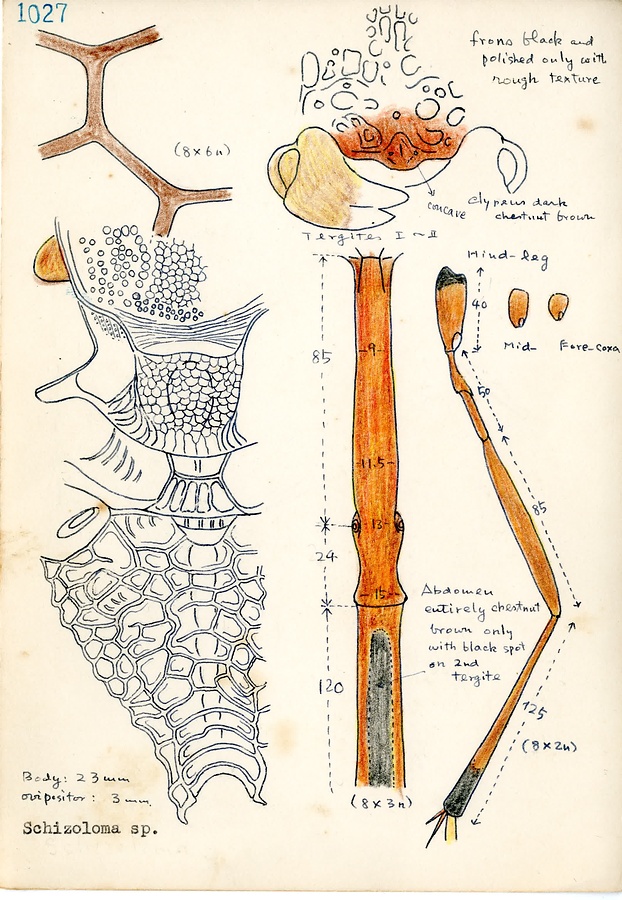 1027
frons black and
polished only with
rough texture
(8×6n)
concave
Clypeus dark
chestnut brown
Tergites I ~ II
Hind-leg
40
Mid-
Fore-coxa
85
9
50
11.5
85
13
24
15
Abdomen
entirely chestnut
brown only
with black spot
on 2nd
tergite
120
125
(8×2n)
(8×3n)
Body: 23 mm
ovipositor: 3 mm.
Schizoloma sp.